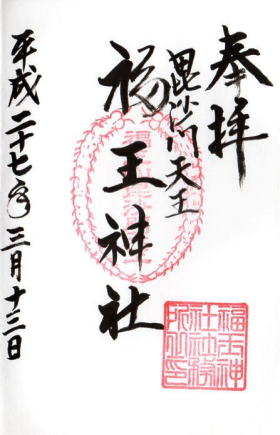 奉拝
毘沙門天王
福王神社
平成二十七年三月十三日
福王神
社社務
所之印